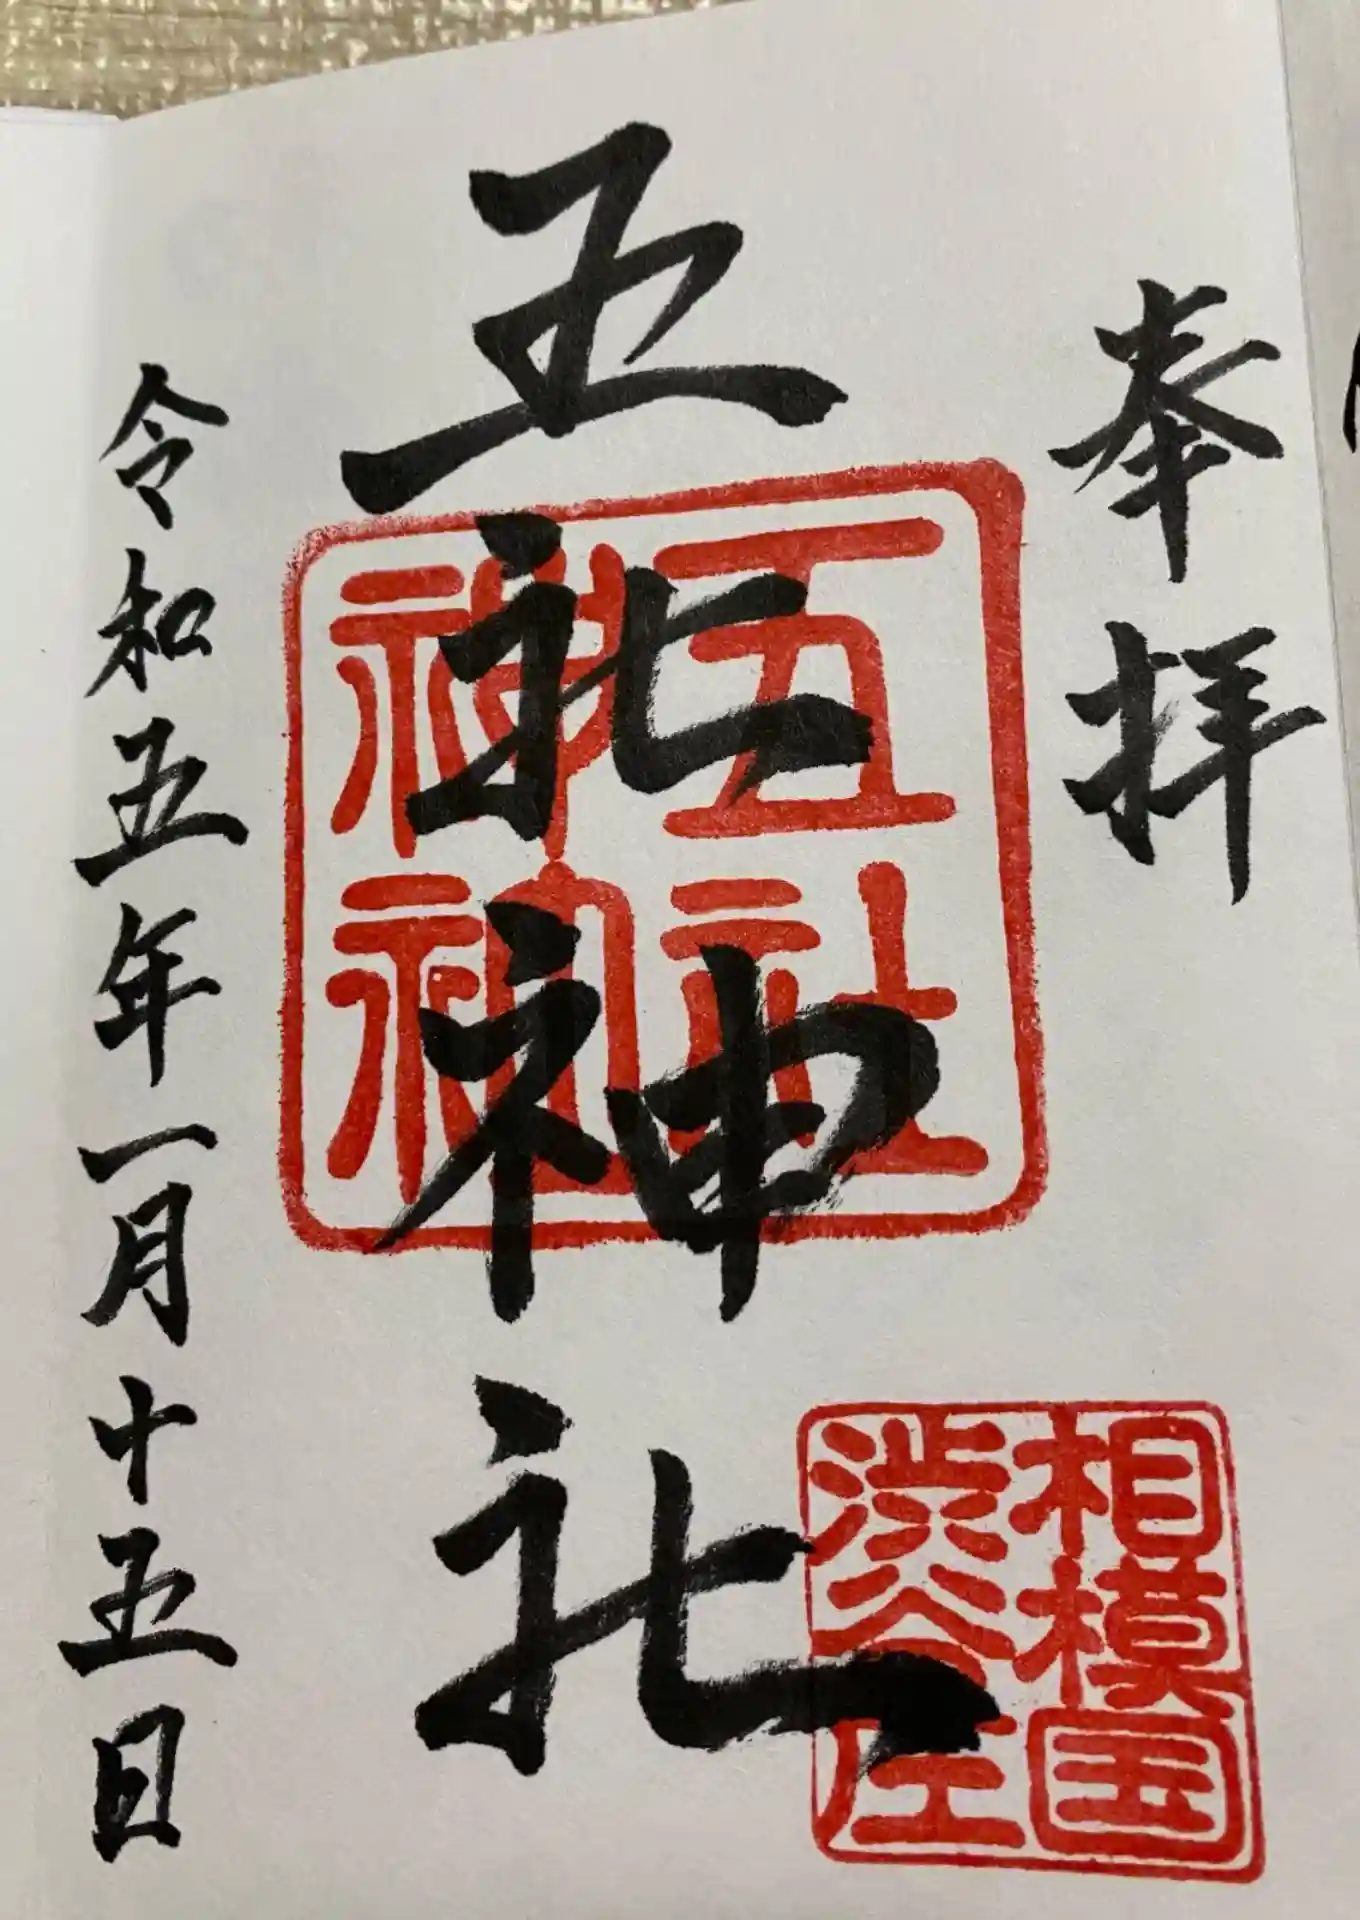 奉拝
五社神社
令和五年一月十五日
五社
神社
相模国
渋谷庄